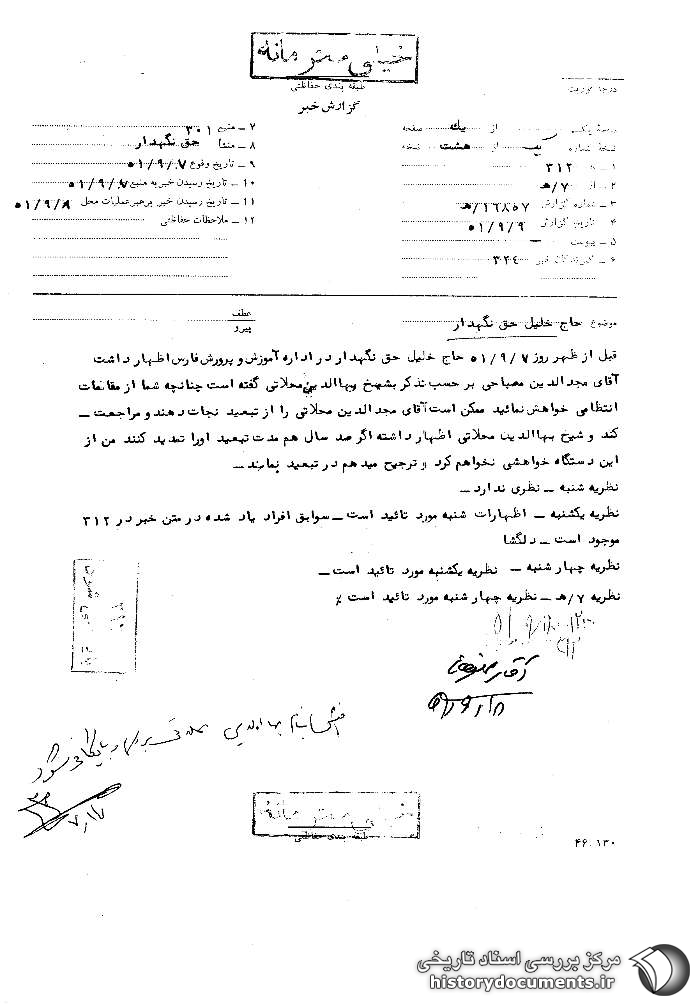 خیلی محرمانه
طبقه بندی حفاظتی
گزارش خبر
نسخه شماره یک از هشت نسخه
از یک صفحه
۱ – ۳۱۲
۲ – از ۷/هـ
۳ – شماره گزارش ۱۶۸۵۷/هـ
۴ – تاریخ گزارش ۵۱/۹/۹
۵ – پیوست –
۶ – گیرندگان خبر ۳۲۴
۷ – منبع ۳۰۱
۸ – منشأ حق نگهدار
۹ – تاریخ وقوع ۵۱/۹/۷
۱۰ – تاریخ رسیدن خبر به منبع ۵۱/۹/۷
۱۱ – تاریخ رسیدن خبر برهبر عملیات محل ۵۱/۹/۸
۱۲ – ملاحظات حفاظتی
موضوع حاج خلیل حق نگهدار
عطف
پیرو
قبل از ظهر روز ۵۱/۹/۷ حاج خلیل حق نگهدار در اداره آموزش و پرورش فارس اظهار داشت
آقای مجدالدین مصباحی بر حسب تذکر بشیخ بهاالدین محلاتی گفته است چنانچه شما از مقامات
انتظامی خواهش نمائید ممکن است آقای مجدالدین محلاتی را از تبعید نجات دهند و مراجعت ــ
کند و شیخ بهاالدین محلاتی اظهار داشته اگر صد سال هم مدت تبعید اورا تمدید کنند من از
این دستگاه خواهشی نخواهم کرد و ترجیح میدهم در تبعید بماند ــ
نظریه شنبه ــ نظری ندارد ــ
نظریه یکشنبه ــ اظهارات شنبه مورد تائید است ــ سوابق افراد یاد شده در متن خبر در ۳۱۲
موجود است ــ دلگشا
نظریه چهارشنبه ــ نظریه یکشنبه مورد تائید است ــ
نظریه ۷/هـ ــ نظریه چهارشنبه مورد تائید است ٪
۳۱۲
آقای
بایگانی شود
خیلی محرمانه
طبقه بندی حفاظتی
۴۶.۱۳۰
مرکز بررسی اسناد تاریخی
historydocuments.ir